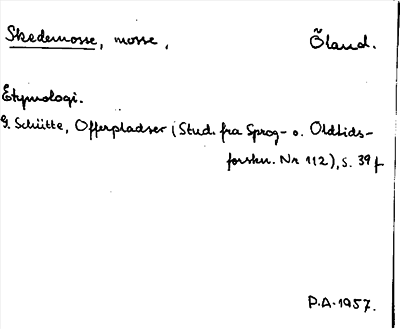 Skedemosse, mosse, Öland.
Etymologi.
G. Schütte, Offerpladser (Stud. fra Sprog- o. Oldtids-
forskn. Nr 112), s. 39 f
P.A. 1957.